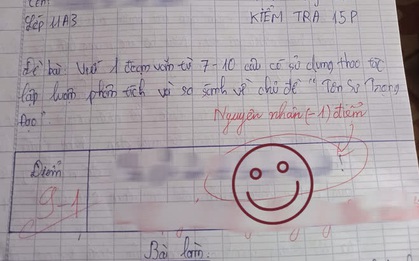 Lớp 11A3
KIỂM TRA 15P
Đề bài: Viết 1 đoạn văn từ 7-10 câu có sử dụng thao tác
lập luận phân tích và so sánh về chủ đề "Tôn Sư Trọng
Đạo"
Nguyên nhân (-1) điểm
Điểm
9-1
Bài làm: